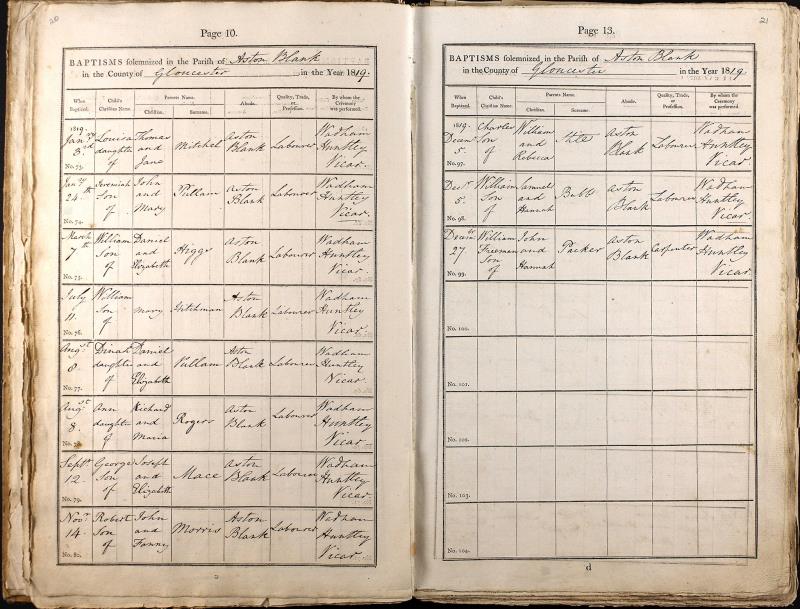 20
Page 10.
BAPTISMS solemnized in the Parish of Aston Blank
in the County of Gloucester in the Year 1819.
When Baptized. Child's Christian Name. Parents Name. Christian. Surname. Abode. Quality, Trade, or Profession. By whom the Ceremony was performed.
1819. Louisa Thomas Aston Wadham
Jany 3rd daughter and Mitchel Blank Labourer Huntley
No. 73. of Jane Vicar.
Jany Jeremiah John Aston Wadham
24th Son and Pullam Blank Labourer Huntley
No. 74. of Mary Vicar.
March William Daniel Aston Wadham
7th Son and Higgs Blank Labourer Huntley
No. 75. of Elizabeth Vicar.
July William Aston Wadham
11. Son Mary Hitchman Blank Labourer Huntley
No. 76. of Vicar.
Augst Dinah Daniel Aston Wadham
8 daughter and Pullam Blank Labourer Huntley
No. 77. of Elizabeth Vicar.
Augst Ann Richard Aston Wadham
8. daughter and Rogers Blank Labourer Huntley
of Maria Vicar.
Septr George Joseph Aston Wadham
12. Son and Mace Blank Labourer Huntley
No. 79. of Elizabeth Vicar.
Novr Robert John Aston Wadham
14. Son and Morris Blank Labourer Huntley
No. 80. of Fanny Vicar.
21
Page 13.
BAPTISMS solemnized in the Parish of Aston Blank
in the County of Gloucester in the Year 1819
When Baptized. Child's Christian Name. Parents Name. Christian. Surname. Abode. Quality, Trade, or Profession. By whom the Ceremony was performed.
1819. Charles William Aston Wadham
5. Son and Blank Labourer Huntley
No. 97. of Rebecca Vicar.
Decr William Samuel Aston Wadham
5. Son and Bubb Blank Labourer Huntley
No. 98. of Hannah Vicar.
William John Aston Wadham
27 Freeman and Packer Blank Carpenter Huntley
No. 99. Son of Hannah Vicar.
No. 100.
No. 101.
No. 102.
No. 103.
No. 104.
d